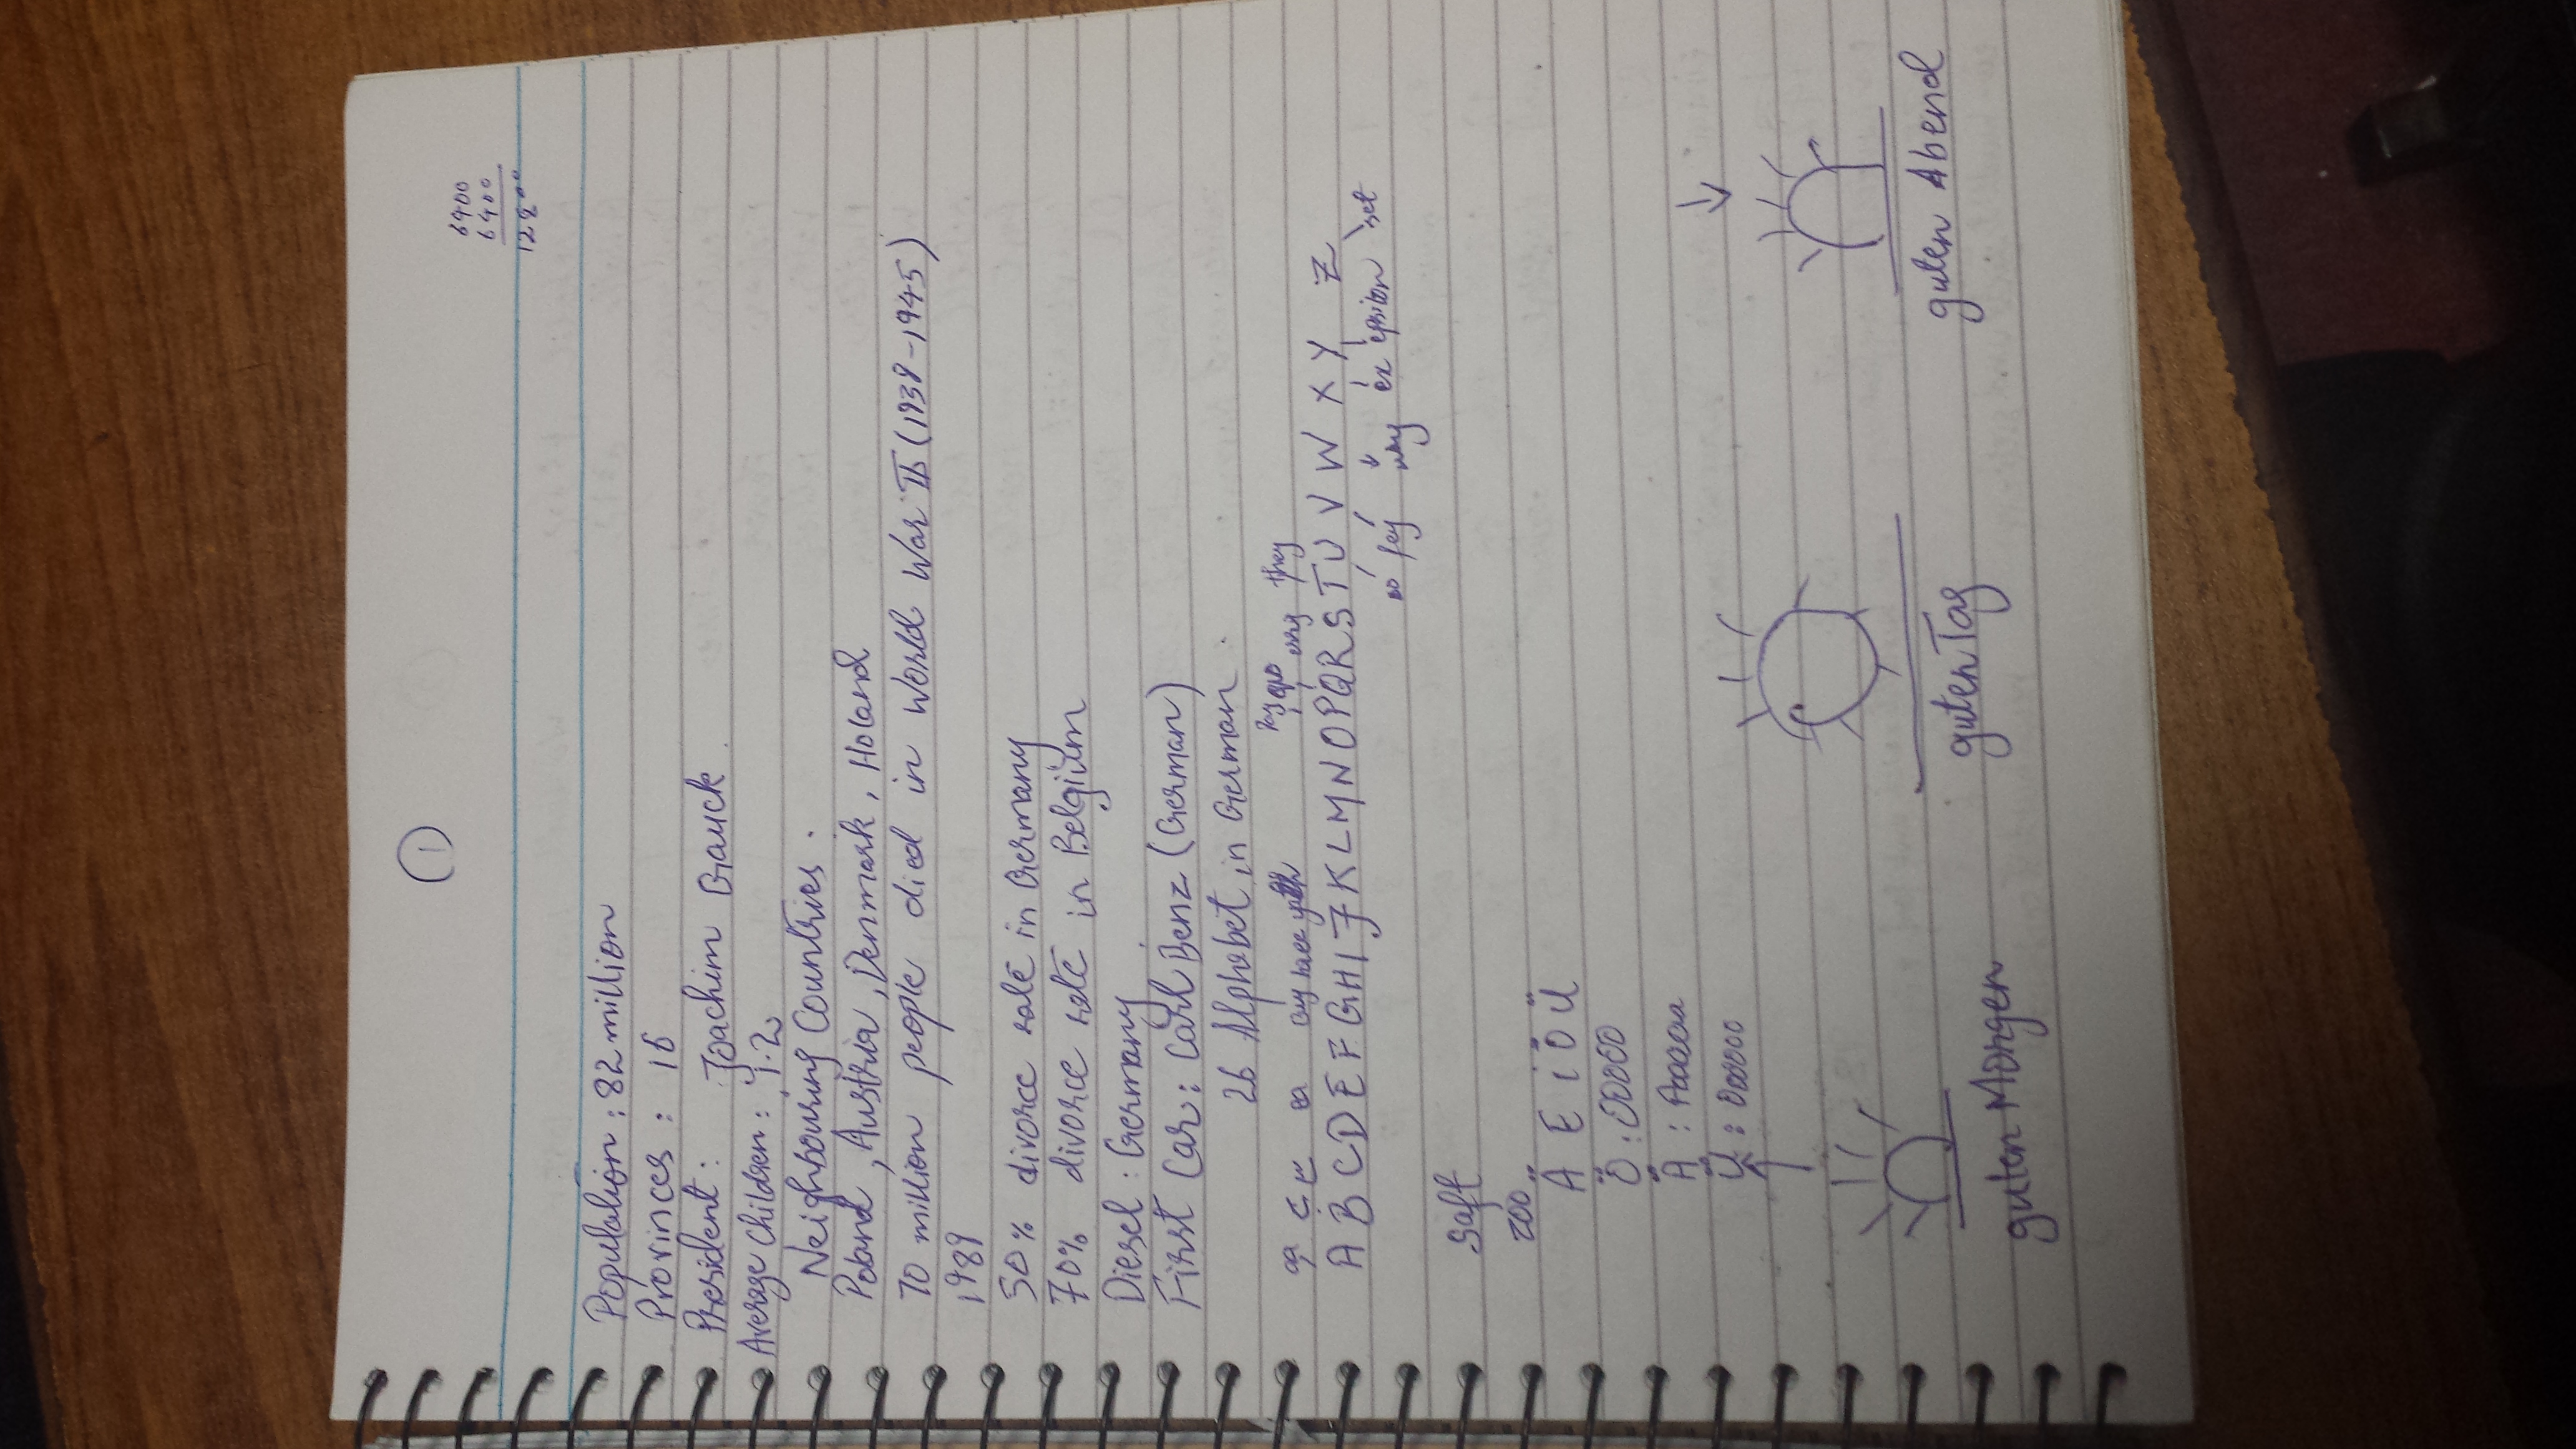 1
6400
6400
12800
Population : 82 million
Provinces : 16
President : Joachim Gauck.
Average children : 1.2
Neighbouring Countries.
Poland, Austria, Denmark, Holand
70 million people died in World War II (1938-1945)
1989
50% divorce rate in Germany
70% divorce rate in Belgium
Diesel : Germany
First Car : Carl Benz (German)
26 Alphabet in German.
A B C D E F G H I J K L M N O P Q R S T U V W X Y Z
oo fay
Saft
zoo
Ä E i Ö Ü
Ö : OOOOO
Ä : Aaaaaa
Ü :
guten Morgen
guten Tag
guten Abend